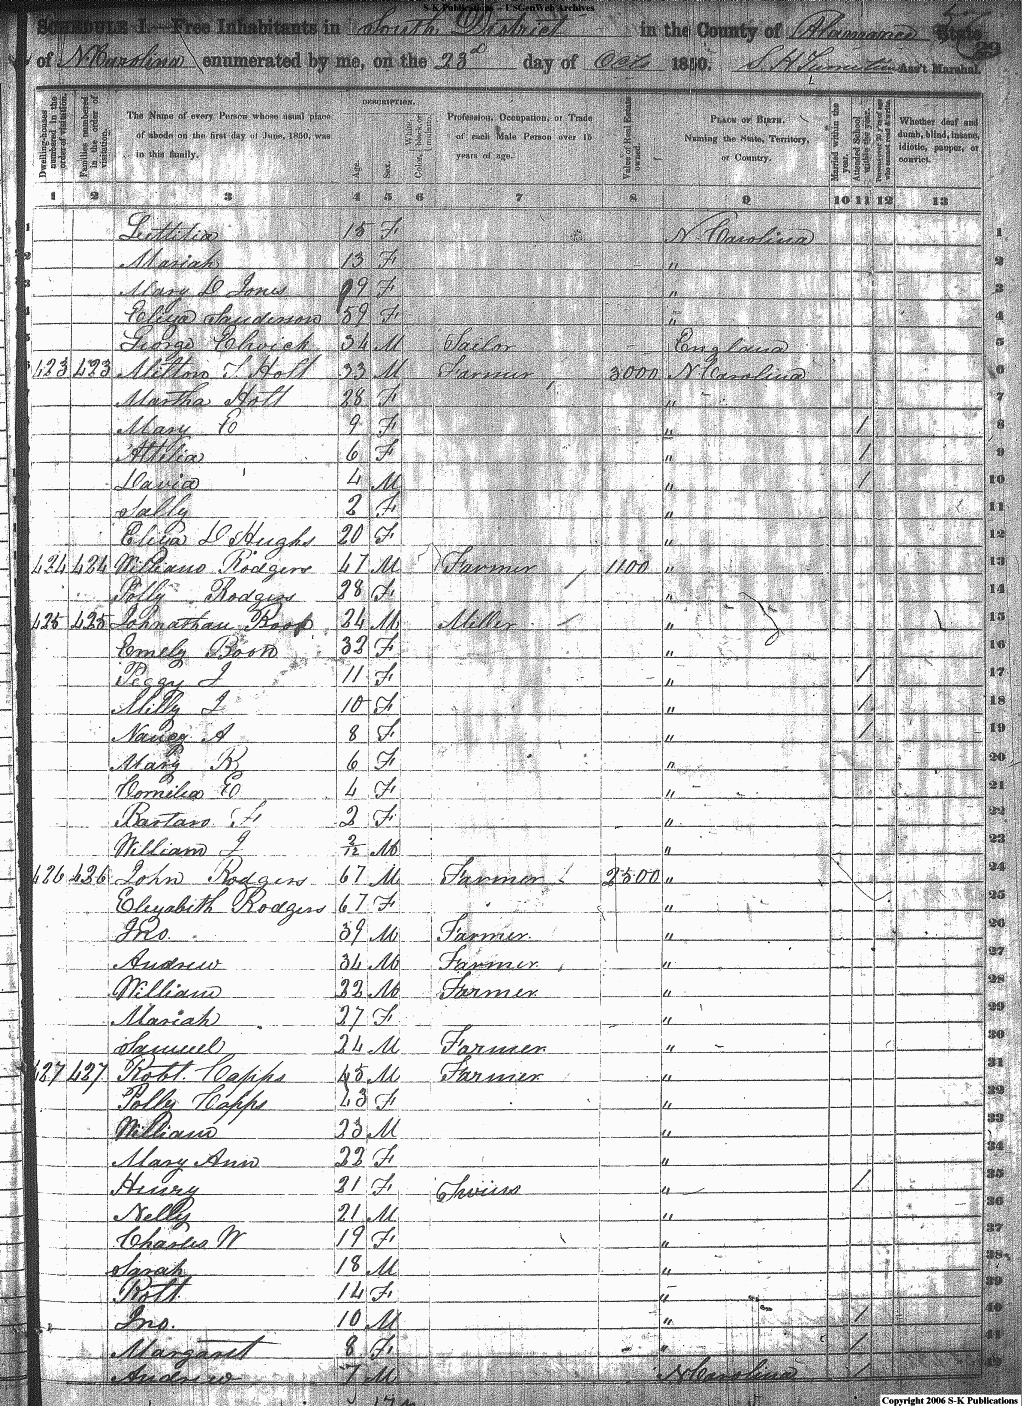 S-K Publications - USGenWeb Archives
SCHEDULE I.—Free Inhabitants in South District in the County of Alamance State
29
of N. Carolina enumerated by me, on the 23d day of Octo 1850. Ass't Marshal.
Dwelling-houses numbered in the order of visitation. Families numbered in the order of visitation. The Name of every Person whose usual place of abode on the first day of June, 1850, was in this family. DESCRIPTION. Age. Sex. Color, White, black, or mulatto. Profession, Occupation, or Trade of each Male Person over 15 years of age. Value of Real Estate owned. PLACE OF BIRTH. Naming the State, Territory, or Country. Married within the year. Attended School within the year. Persons over 20 y'rs of age who cannot read & write. Whether deaf and dumb, blind, insane, idiotic, pauper, or convict.
1 2 3 4 5 6 7 8 9 10 11 12 13
1 Luttitia 15 F N. Carolina 1
2 Mariah 13 F " 2
3 Mary D Jones 9 F " 3
4 Eliza Sanderson 59 F " 4
5 George 34 M Tailor England 5
423 423 Milton T Holt 33 M Farmer 3000 N Carolina 6
Martha Holt 28 F " 7
Mary E 9 F " / 8
Attilia 6 F " / 9
David 4 M " / 10
Sally 2 F " 11
Eliza D Hughs 20 F " 12
424 424 William Rodgers 47 M Farmer / 1100 " 13
Polly Rodgers 28 F " 14
425 425 Johnathan Boon 24 M Miller / " 15
Emely Boon 32 F " 16
Peggy J 11 F " / 17
Milly J 10 F " / 18
Nancy A 8 F " / 19
Mary R 6 F " 20
Cornelia E 4 F " 21
F 2 F " 22
William J 2/12 M " 23
426 426 John Rodgers 67 M Farmer 2500 " 24
Elizabeth Rodgers 67 F " 25
Jno. 39 M Farmer " 26
Andrew 34 M Farmer " 27
William 22 M Farmer " 28
Mariah 27 F " 29
Samuel 24 M Farmer " 30
427 427 Robt. Capps 45 M Farmer " 31
Polly Capps 43 F " 32
William 23 M " 33
Mary Ann 22 F " 34
Henry 21 F Twins " / 35
Nelly 21 M " 36
Charles W 19 F " 37
Sarah 18 M " 38
Robt 14 F " 39
Jno. 10 M " / 40
Margaret 8 F " / 41
Andrew 7 M N Carolina / 42
Copyright 2006 S-K Publications